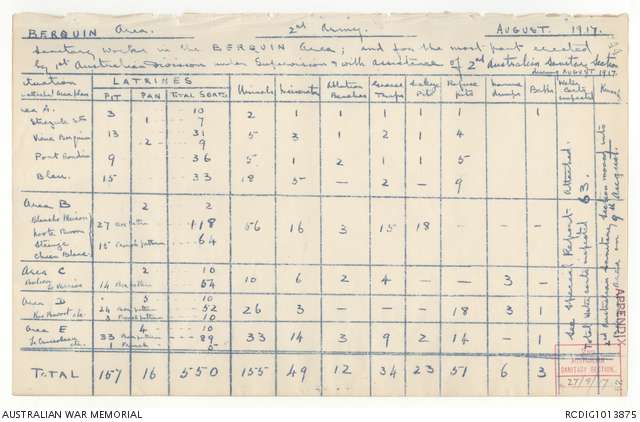 BERQUIN Area. 2nd Army. AUGUST. 1917.
Sanitary Works in the BERQUIN Area; and for the most part erected
by 1st Australian Division under Supervision & with assistance of 2nd Australian Sanitary Section
during AUGUST 1917.
LATRINES
PIT PAN TOTAL SEATS Urinals Incinerators Ablution Benches Grease Traps Soakage Pits Refuse pits Manure dumps Baths Water Carts inspected
Area A. 3 10 2 1 1 1 1 1 1
1 7
Vieux Berquin 13 31 5 3 1 2 1 4
2 9
9 36 5 1 2 1 1 5
Bleu. 15 33 18 5 - 2 - 9
Area B 2 2
27 118 56 16 3 15 18
15 French pattern 64
Area C 2 10
14 54 10 6 2 4 - - 3
Area D 5 10
24 52 26 3 18 3 1
10
Area E 4 10
33 89 33 14 3 9 2 14 - 1
1 French
TOTAL 157 16 550 155 49 12 34 23 51 6 3
See Special Report attached.
Total Water Carts inspected 63.
2nd Australian Sanitary Section moved into
area on 9th August.
APPENDIX
SANITARY SECTION
27/9/17
AUSTRALIAN WAR MEMORIAL RCDIG1013875